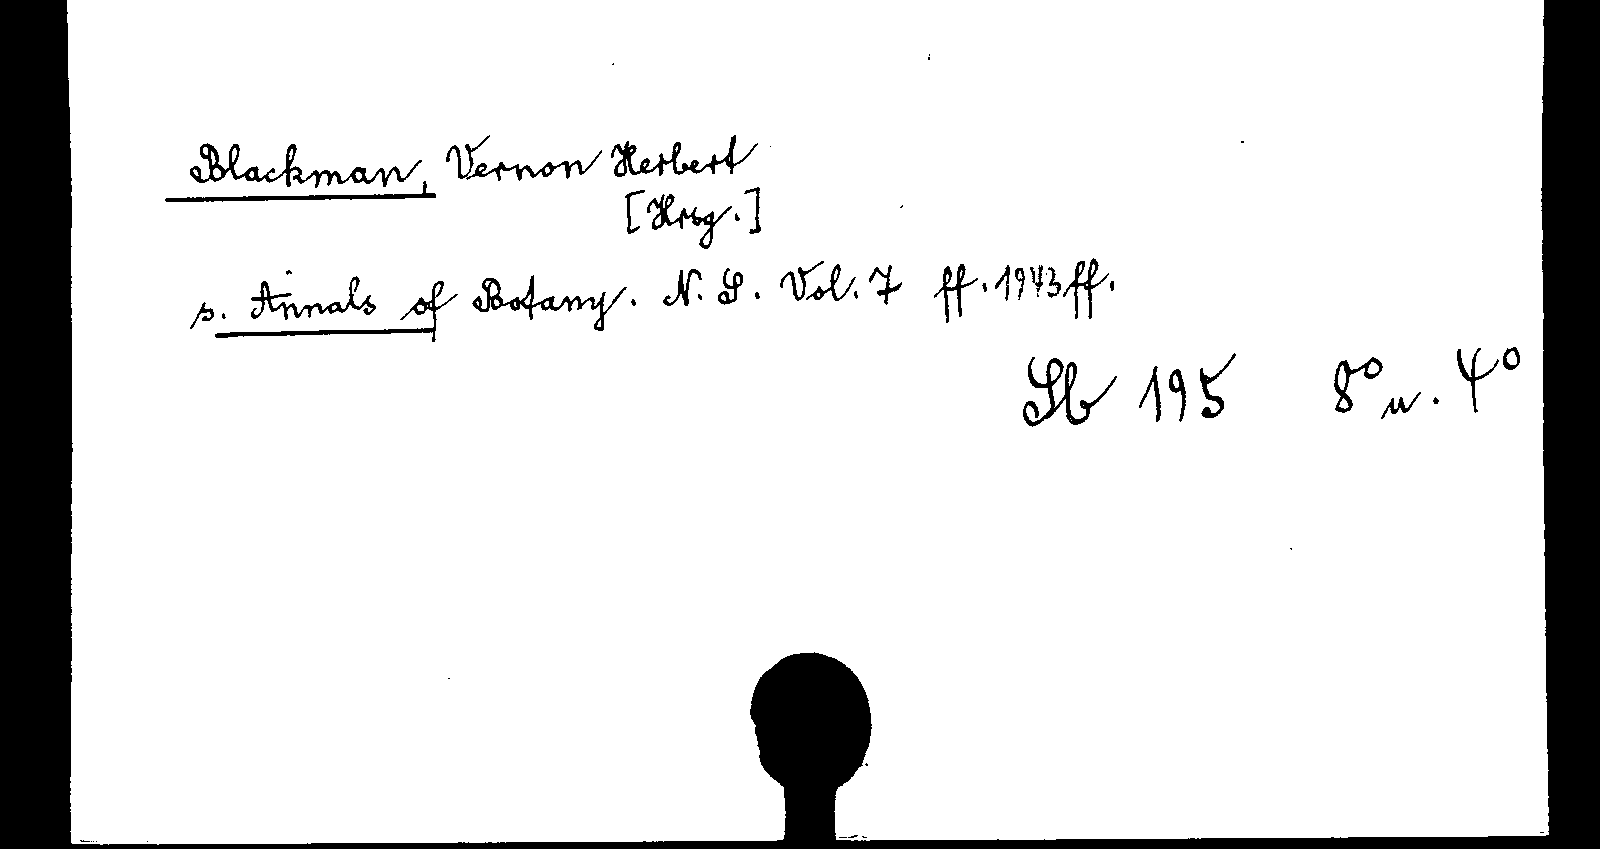 Blackman, Vernon Herbert
[Hrsg.]
s. Annals of Botany. N. S. Vol. 7 ff. 1943 ff.
Sb 195 8° u. 4°